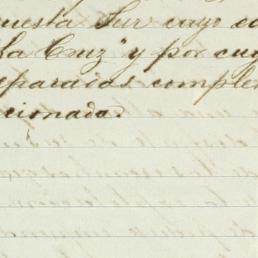 uesta Sur cuyo co
La Cruz" y por cuy
eparados comple
cionada.